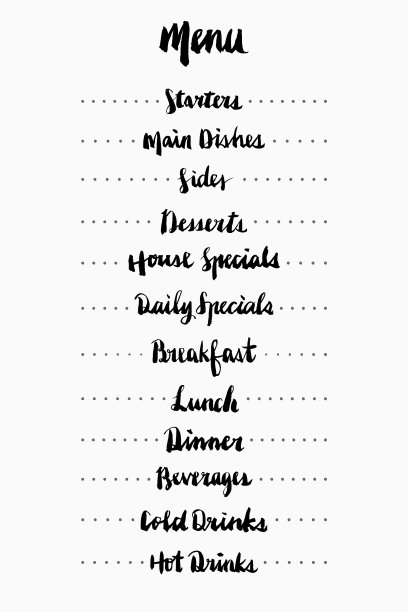 Menu
Starters
Main Dishes
Sides
Desserts
House Specials
Daily Specials
Breakfast
Lunch
Dinner
Beverages
Cold Drinks
Hot Drinks